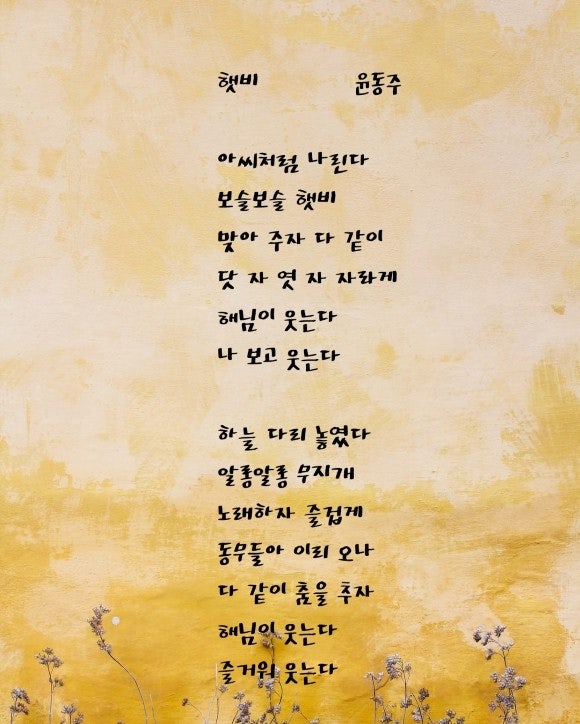 햇비 윤동주
아씨처럼 나린다
보슬보슬 햇비
맞아 주자 다 같이
닷 자 엿 자 자라게
해님이 웃는다
나 보고 웃는다
하늘 다리 놓였다
알롱알롱 무지개
노래하자 즐겁게
동무들아 이리 오나
다 같이 춤을 추자
해님이 웃는다
즐거워 웃는다